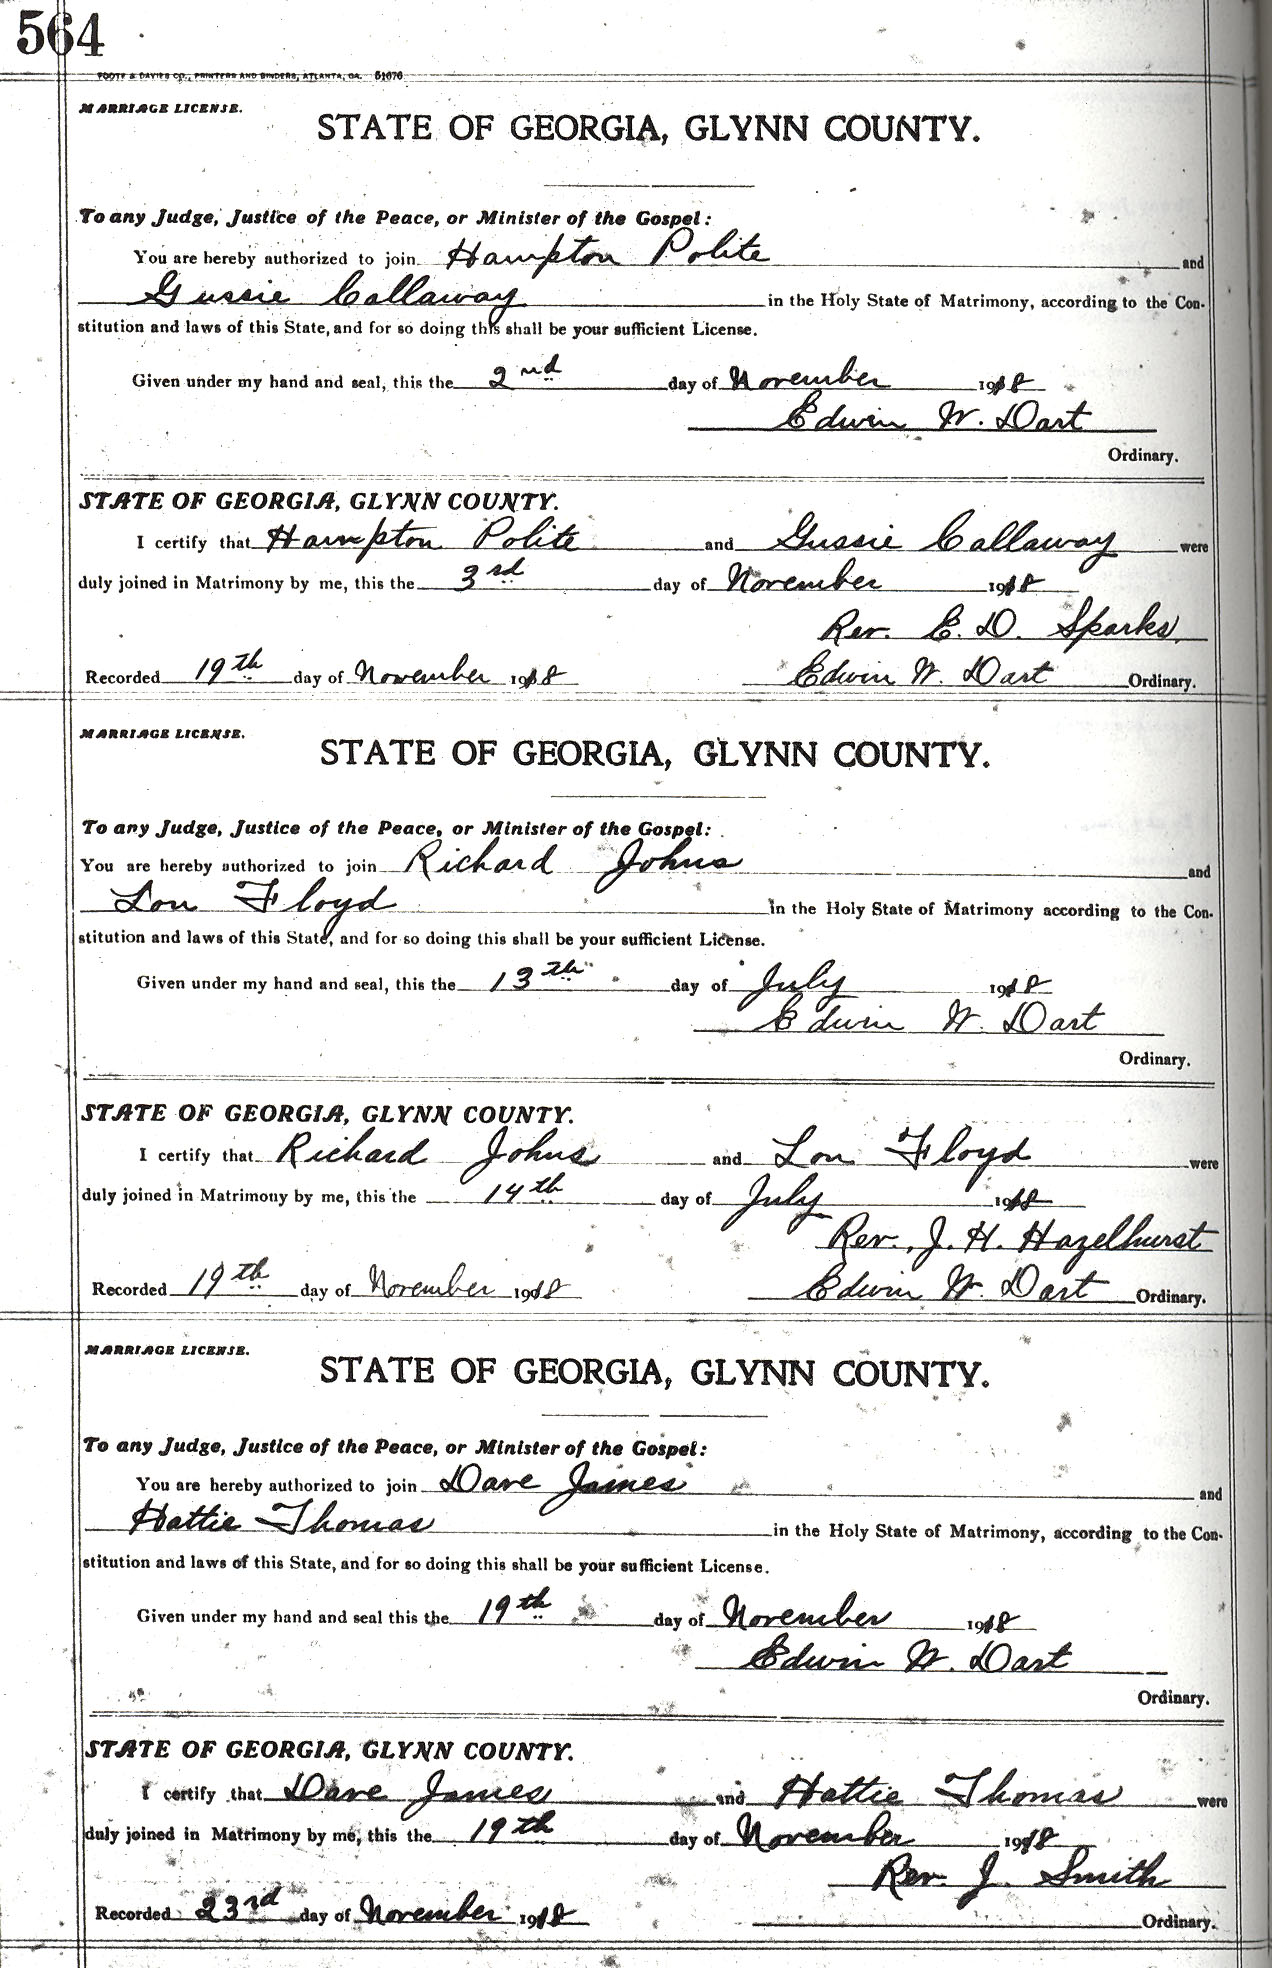 564
FOOTE & DAVIES CO., PRINTERS AND BINDERS, ATLANTA, GA. 51676
MARRIAGE LICENSE.
STATE OF GEORGIA, GLYNN COUNTY.
To any Judge, Justice of the Peace, or Minister of the Gospel:
You are hereby authorized to join Hampton Polite and
Gussie Callaway in the Holy State of Matrimony, according to the Con-
stitution and laws of this State, and for so doing this shall be your sufficient License.
Given under my hand and seal, this the 2nd day of November 1918
Edwin W. Dart
Ordinary.
STATE OF GEORGIA, GLYNN COUNTY.
I certify that Hampton Polite and Gussie Callaway were
duly joined in Matrimony by me, this the 3rd day of November 1918
Rev. E. D. Sparks
Recorded 19th day of November 1918 Edwin W. Dart Ordinary.
MARRIAGE LICENSE.
STATE OF GEORGIA, GLYNN COUNTY.
To any Judge, Justice of the Peace, or Minister of the Gospel:
You are hereby authorized to join Richard Johns and
Lou Floyd in the Holy State of Matrimony according to the Con-
stitution and laws of this State, and for so doing this shall be your sufficient License.
Given under my hand and seal, this the 13th day of July 1918
Edwin W. Dart
Ordinary.
STATE OF GEORGIA, GLYNN COUNTY.
I certify that Richard Johns and Lou Floyd were
duly joined in Matrimony by me, this the 14th day of July 1918
Rev. J. H. Hazelhurst
Recorded 19th day of November 1918 Edwin W. Dart Ordinary.
MARRIAGE LICENSE.
STATE OF GEORGIA, GLYNN COUNTY.
To any Judge, Justice of the Peace, or Minister of the Gospel:
You are hereby authorized to join Dave James and
Hattie Thomas in the Holy State of Matrimony, according to the Con-
stitution and laws of this State, and for so doing this shall be your sufficient License.
Given under my hand and seal this the 19th day of November 1918
Edwin W. Dart
Ordinary.
STATE OF GEORGIA, GLYNN COUNTY.
I certify that Dave James and Hattie Thomas were
duly joined in Matrimony by me, this the 19th day of November 1918
Rev. J. Smith
Recorded 23rd day of November 1918 Ordinary.